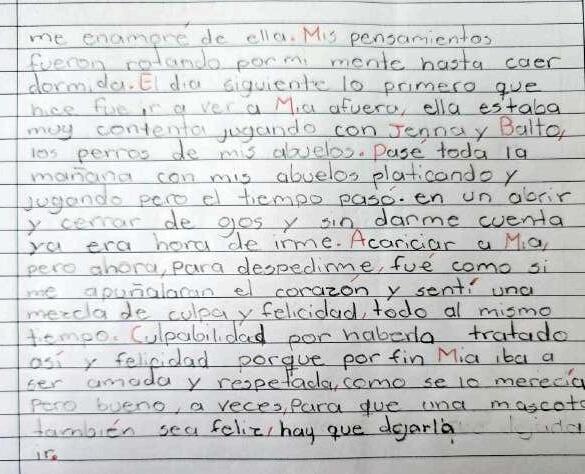 me enamoré de ella. Mis pensamientos
fueron rotando por mi mente hasta caer
dormida. El día siguiente lo primero que
hice fue ir a ver a Mia afuera, ella estaba
muy contenta jugando con Jenna y Balto,
los perros de mis abuelos. Pasé toda la
mañana con mis abuelos platicando y
jugando pero el tiempo pasó. en un abrir
y cerrar de ojos y sin darme cuenta
ya era hora de irme. Acariciar a Mia,
pero ahora, para despedirme, fué como si
me apuñalaran el corazón y sentí una
mezcla de culpa y felicidad, todo al mismo
tiempo. Culpabilidad por haberla tratado
así y felicidad porque por fin Mia iba a
ser amada y respetada, como se lo merecía
Pero bueno, a veces, para que una mascota
también sea feliz, hay que dejarla
ir.